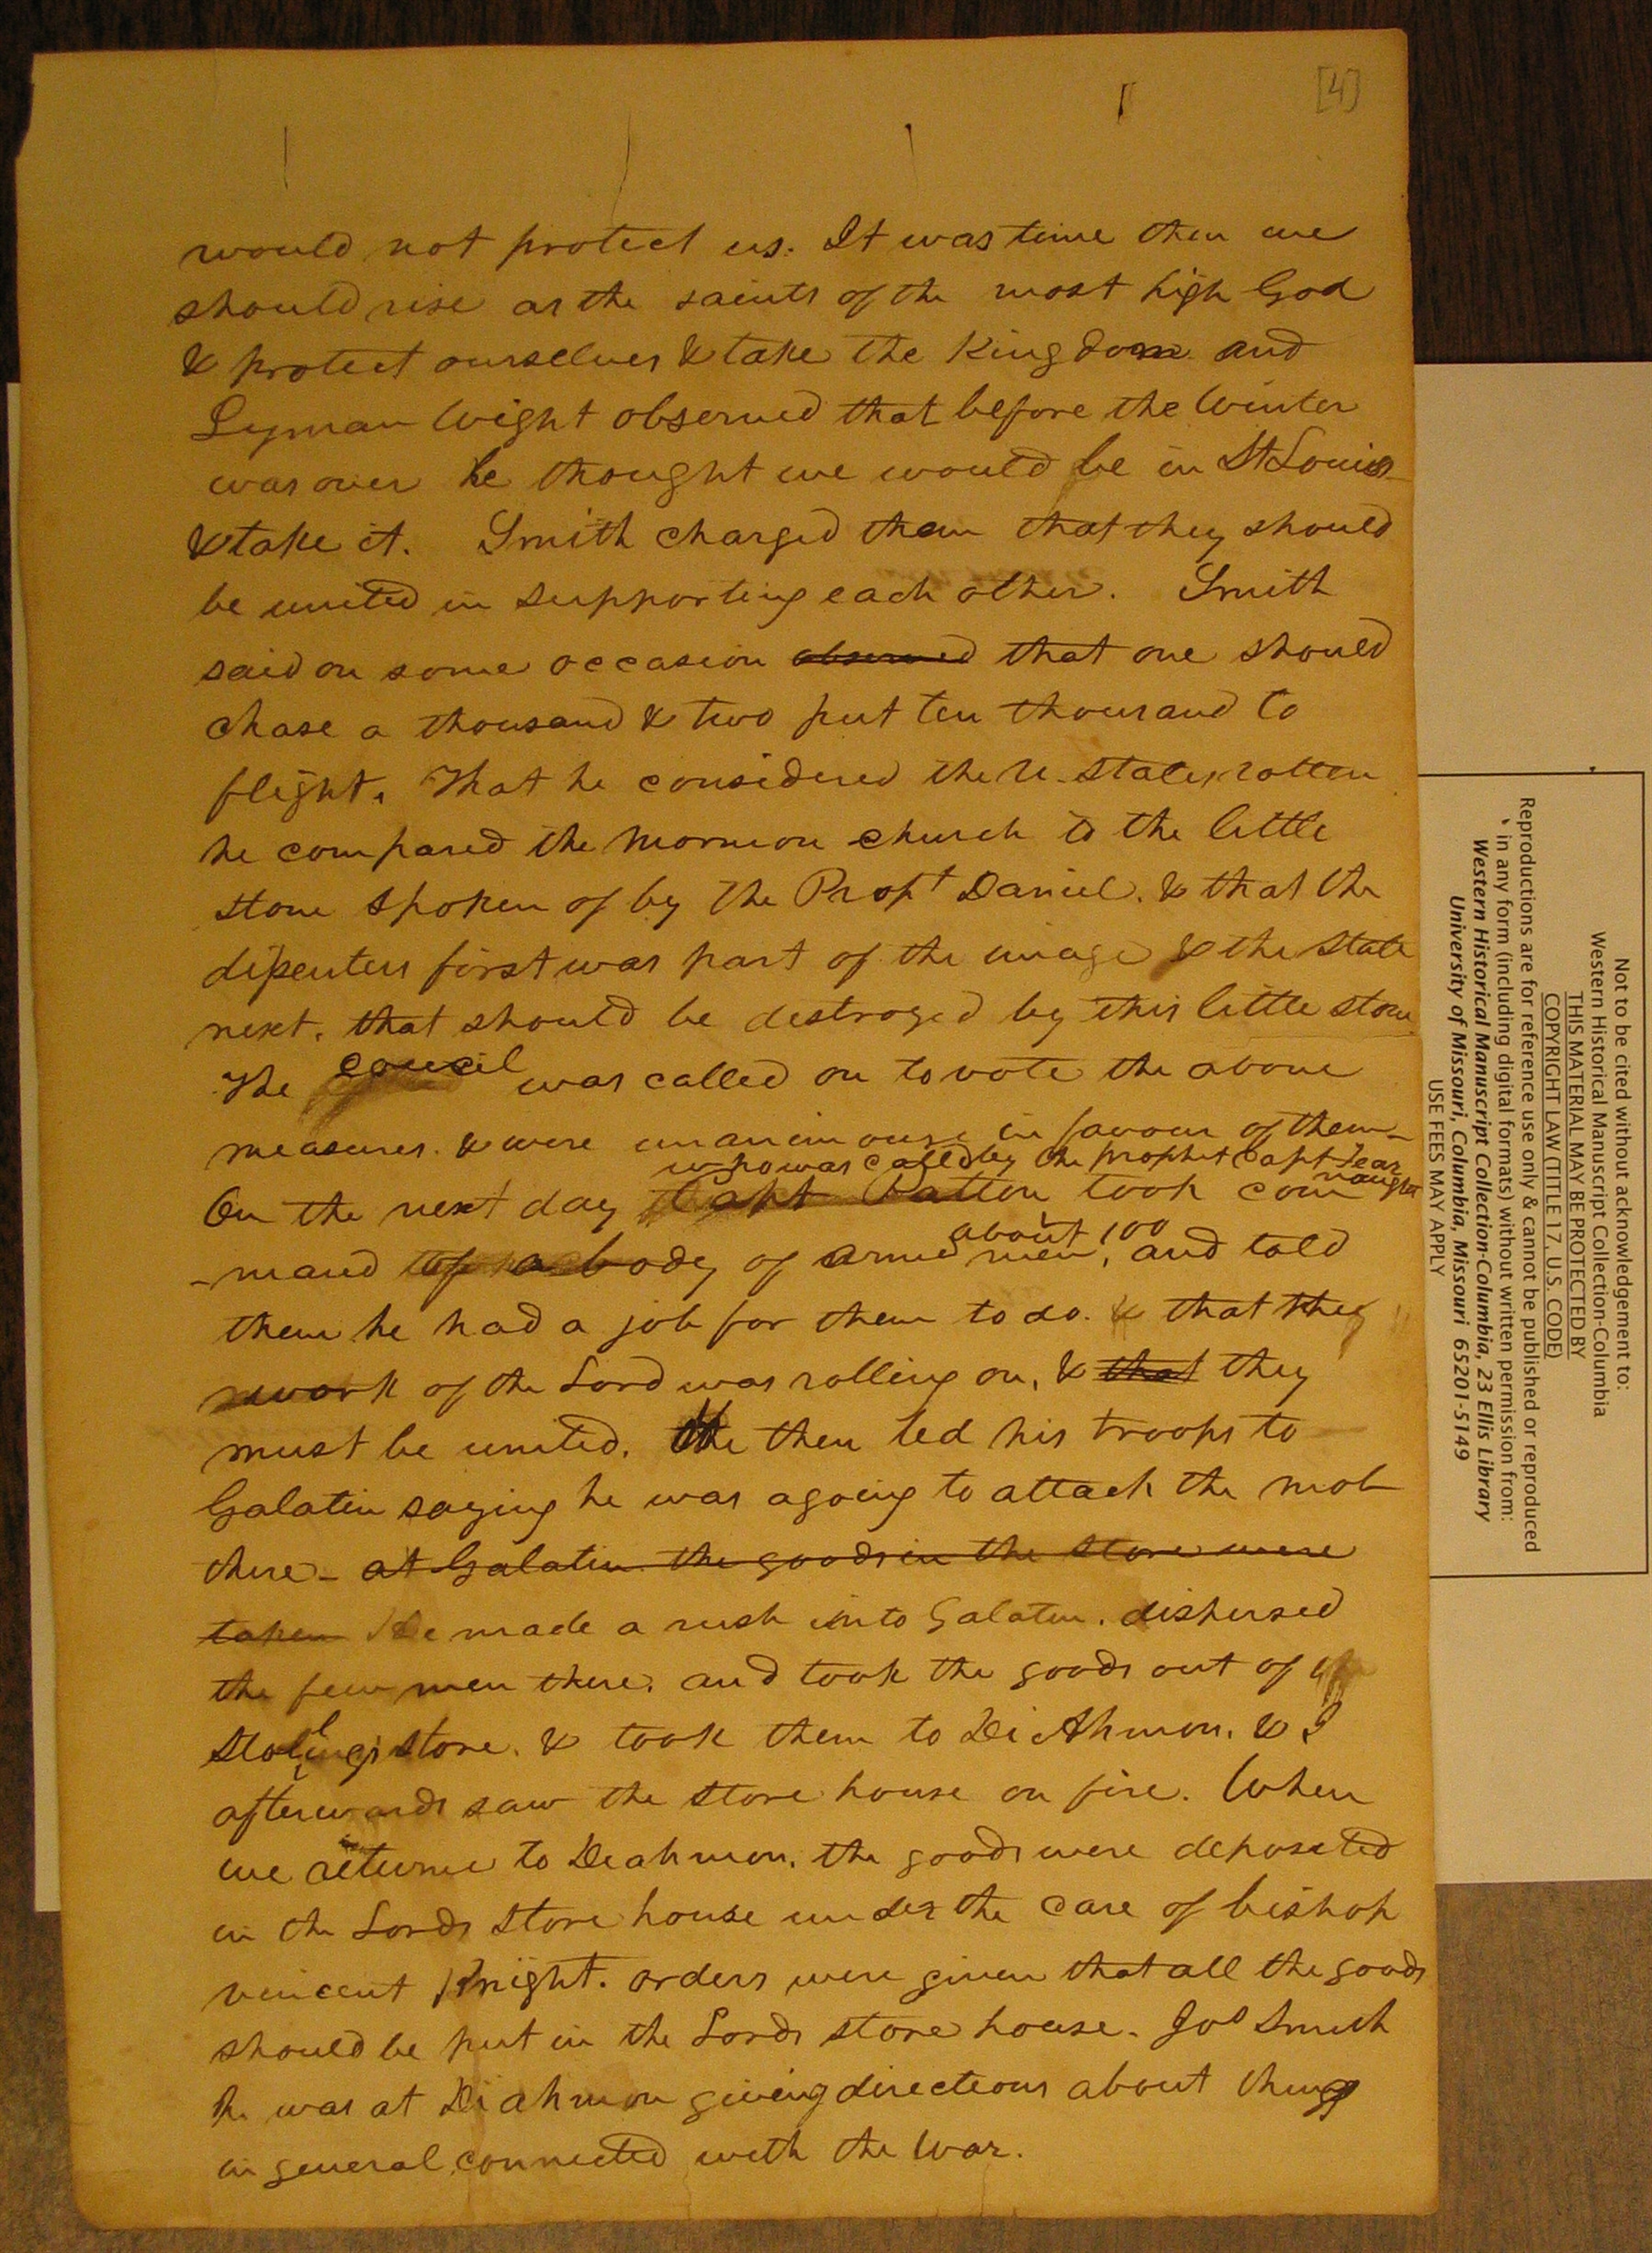 [4]
would not protect us. It was time then we
should rise as the saints of the most high God
& protect ourselves & take the Kingdom. and
Lyman Wight observed that before the Winter
was over he thought we would be in St Louis
& take it. Smith charged them that they should
be united in supporting each other. Smith
said on some occasion observed that one should
chase a thousand & two put ten thousand to
flight. That he considered the U. States rotten
he compared the Mormon church to the little
stone spoken of by the Propt Daniel. & that the
disenters first was part of the image & the State
next. that should be destroyed by this little stone
The council was called on to vote the above
measures. & were unanimous in favour of them-
who was called by the prophet Capt Fear
nought
On the next day Capt Patton took com
about 100
-mand of a body of armed men, and told
them he had a job for them to do. & that the
work of the Lord was rolling on, & that they
must be united. He then led his troops to
Galatin saying he was agoing to attack the mob
there- at Galatin the goods in the store were
taken He made a rush into Galatin. dispersed
the few men there. and took the goods out of
Stolling's store. & took them to Di Ahmon. & I
afterwards saw the store house on fire. When
we returne to Diahmon. the goods were deposited
in the Lords Store house under the care of bishop
vincent Knight. orders were given that all the goods
should be put in the Lords store house. Jos Smith
he was at Diahmon giving directions about things
in general, connected with the War.
Not to be cited without acknowledgement to:
Western Historical Manuscript Collection-Columbia
THIS MATERIAL MAY BE PROTECTED BY
COPYRIGHT LAW (TITLE 17, U.S. CODE)
Reproductions are for reference use only & cannot be published or reproduced
in any form (including digital formats) without written permission from:
Western Historical Manuscript Collection-Columbia, 23 Ellis Library
University of Missouri, Columbia, Missouri 65201-5149
USE FEES MAY APPLY